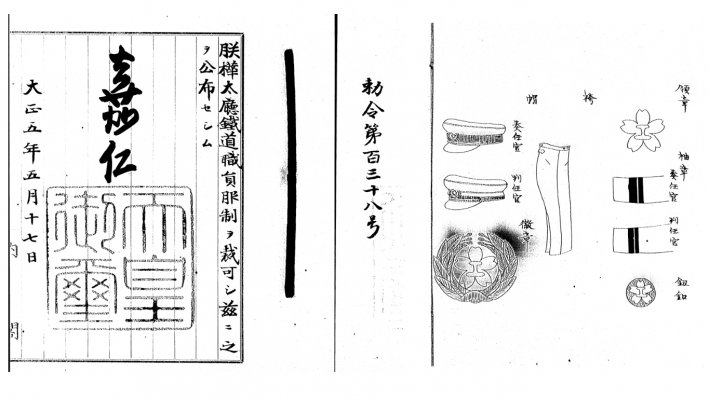 朕樺太廳鐵道職員服制ヲ裁可シ茲ニ之
ヲ公布セシム
嘉仁
天皇御璽
大正五年五月十七日
内閣
勅令第百三十八号
領章
袖章
奏任官
判任官
釦鈕
袴
帽
奏任官
判任官
徽章